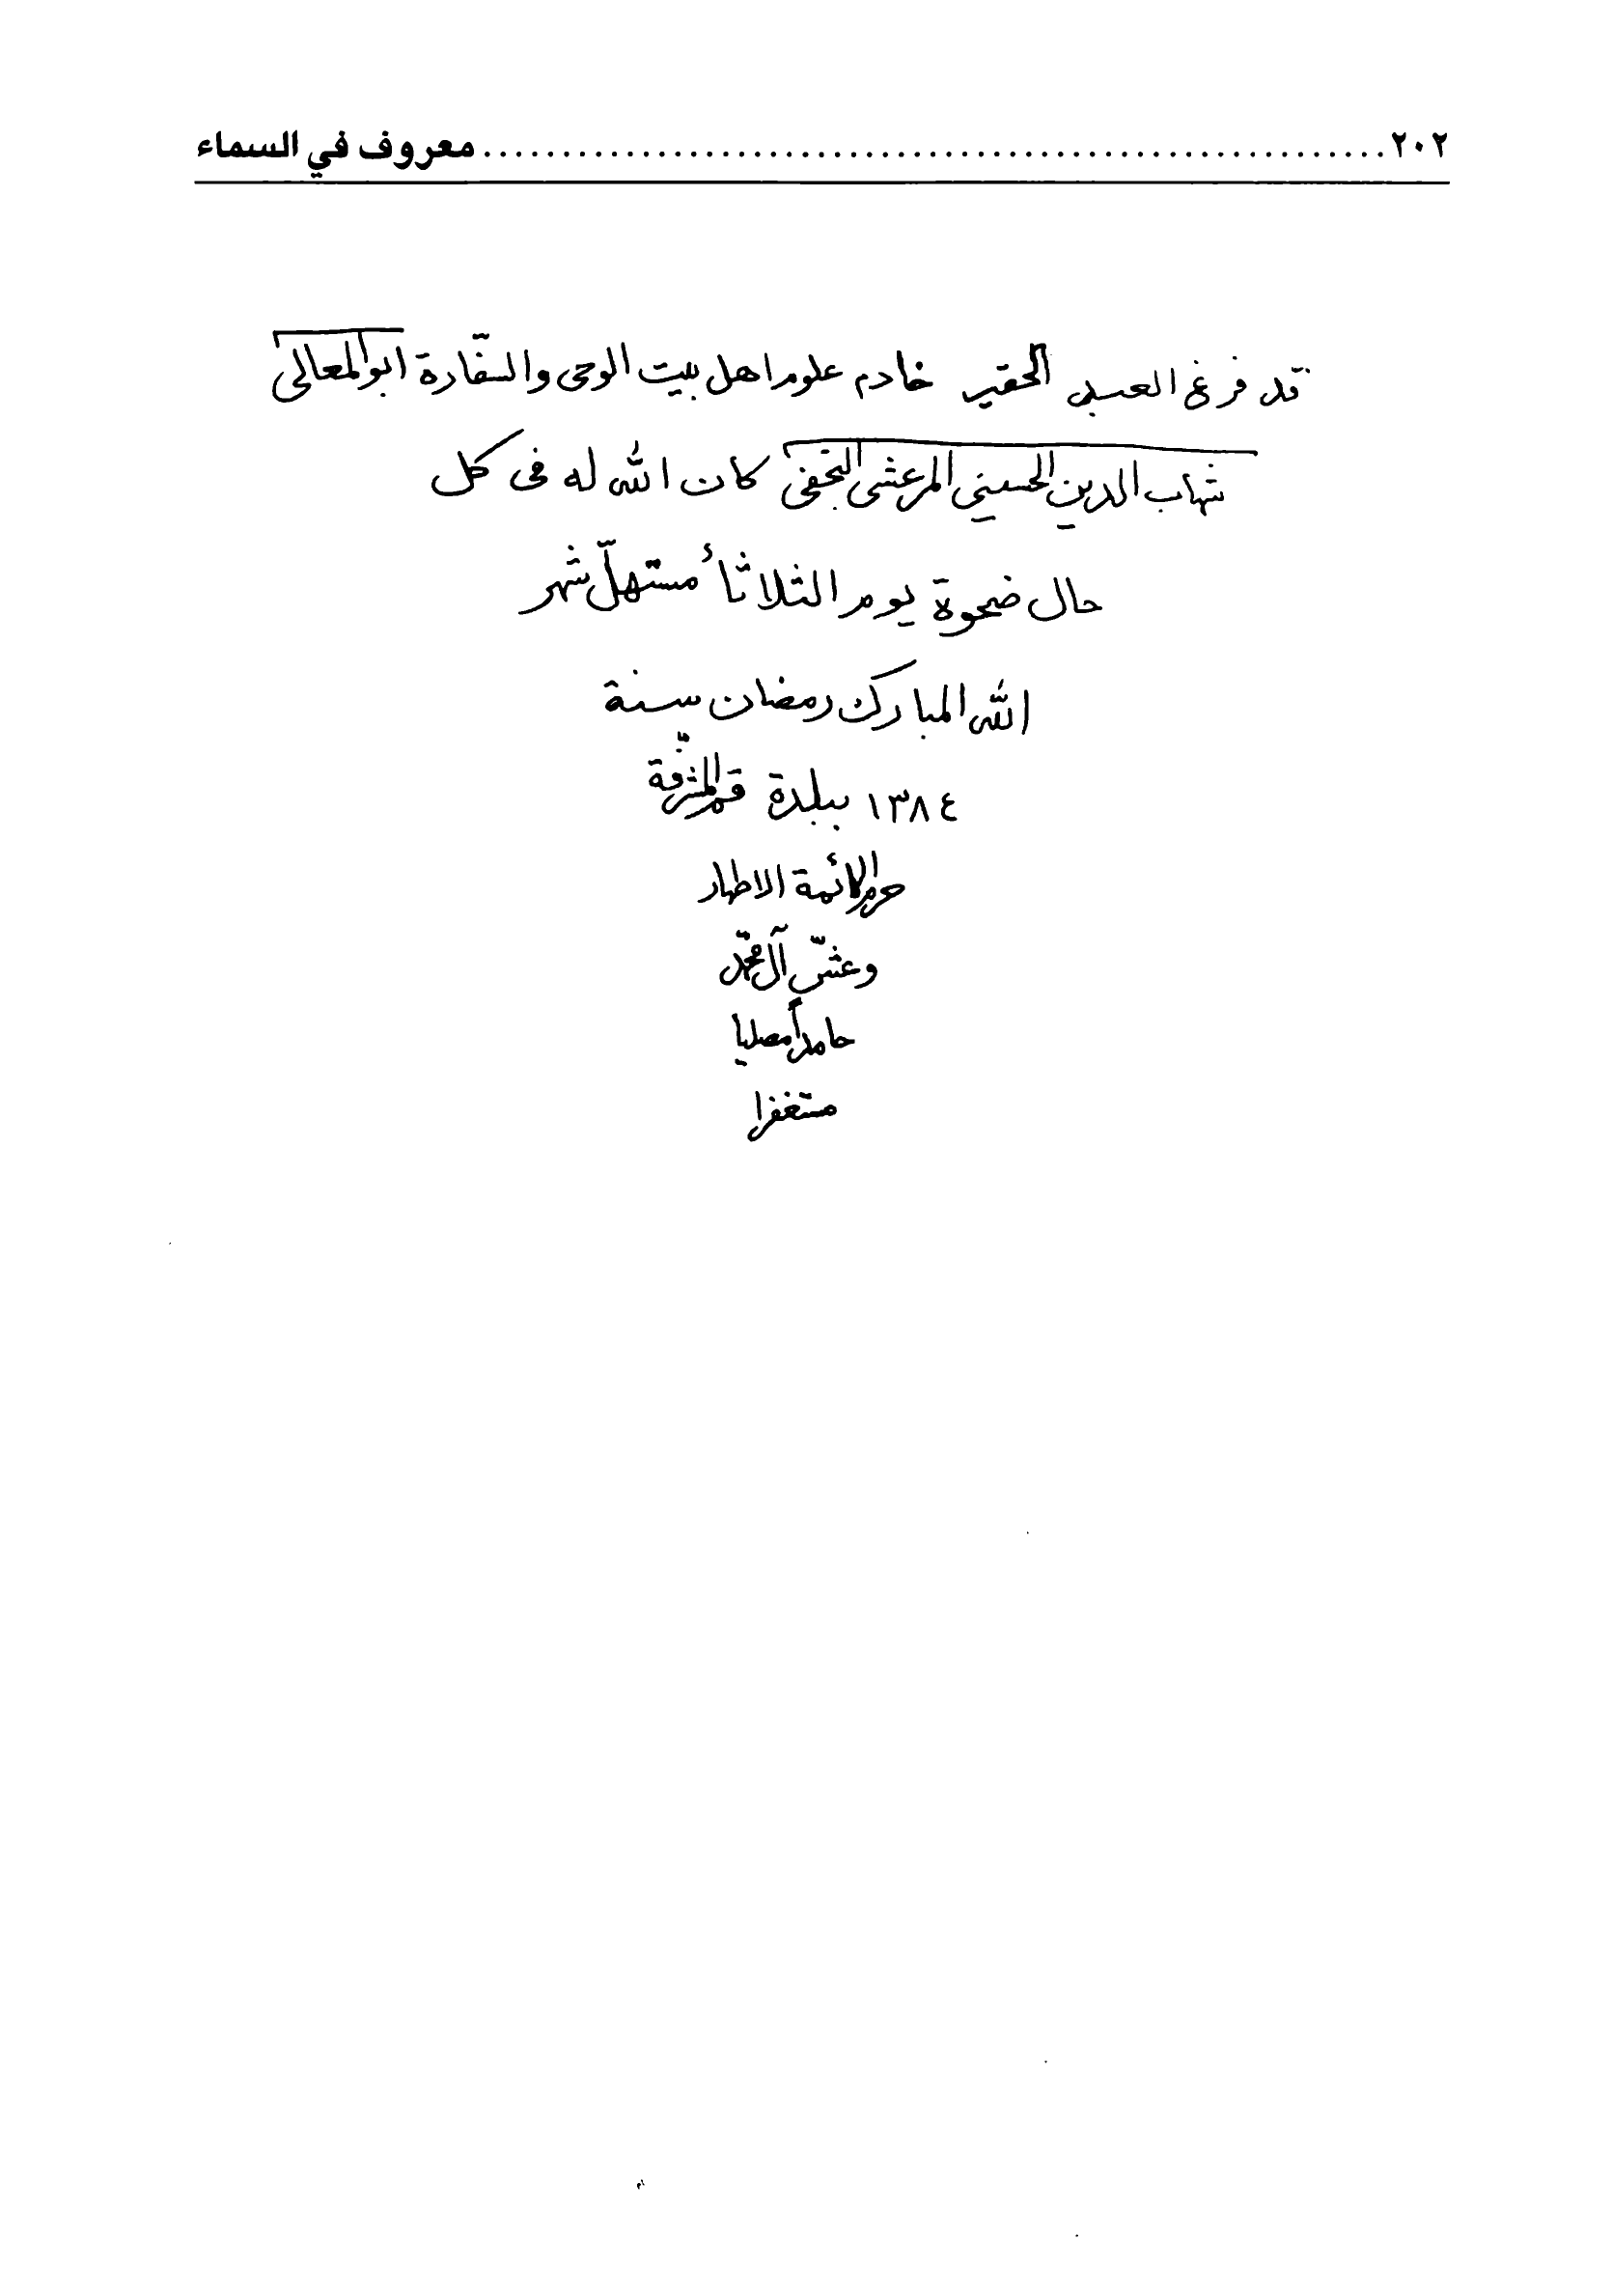 ٢٠٢ ........................................................ معروف في السماء
قد فرغ العبد الحقير خادم علوم اهل بيت الوحى والسفارة ابوالمعالى
شهاب الدين الحسيني المرعشى النجفى كان الله له فى كل
حال ضحوة يوم الثلاثاء مستهلّ شهر
الله المبارك رمضان سنة
١٣٨٤ ببلدة قم المشرّفة
حرم الائمة الاطهار
وعشّ آل محمّد
حامداً مصليا
مستغفرا